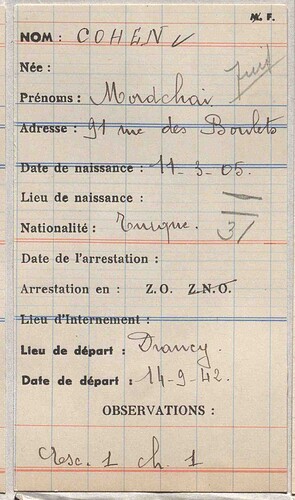 M. F.
NOM : COHEN
Née :
Juif
Prénoms : Mordchai
Adresse : 91 rue des Boulets
Date de naissance : 11-3-05.
Lieu de naissance :
Nationalité : Turque. 3/
Date de l'arrestation :
Arrestation en : Z.O. Z.N.O.
Lieu d'Internement :
Lieu de départ : Drancy.
Date de départ : 14-9-42.
OBSERVATIONS :
Esc. 1 ch. 1